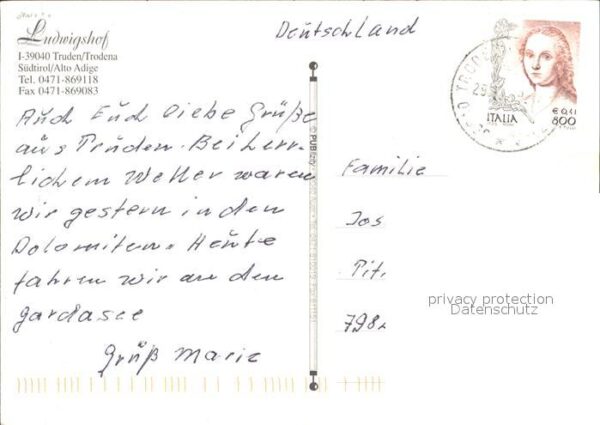 Ludwigshof
I-39040 Truden/Trodena
Südtirol/Alto Adige
Tel. 0471-869118
Fax 0471-869083
Deutschland
Auch Euch Liebe Grüße
aus Truden. Bei herr-
lichem Wetter waren
wir gestern in den
Dolomiten. Heute
fahren wir an den
Gardasee
Gruß Maria
Familie
Jos
Pit.
798
privacy protection
Datenschutz
ITALIA
€ 0,41
800